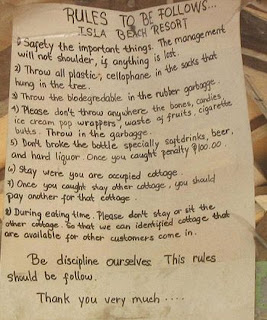 RULES TO BE FOLLOWED...
ISLA BEACH RESORT
1) Safety the important things. The management
will not shoulder, is anything is lost.
2) Throw all plastic, cellophane in the sacks that
hung in the tree.
3) Throw the biodegredable in the rubber garbage.
4) Please don't throw anywhere the bones, candies,
ice cream pop wrappers, waste of fruits, cigarette
butts. Throw in the garbage.
5) Don't broke the bottle specially softdrinks, beer,
and hard liquor. Once you caught penalty ₱100.00.
6) Stay were you are occupied cottage
7) Once you caught stay other cottage, you should
pay another for that cottage.
8) During eating time. Please don't stay or sit the
other cottage. So that we can identified cottage that
are available for other customers come in.
Be discipline ourselves. This rules
should be follow.
Thank you very much....